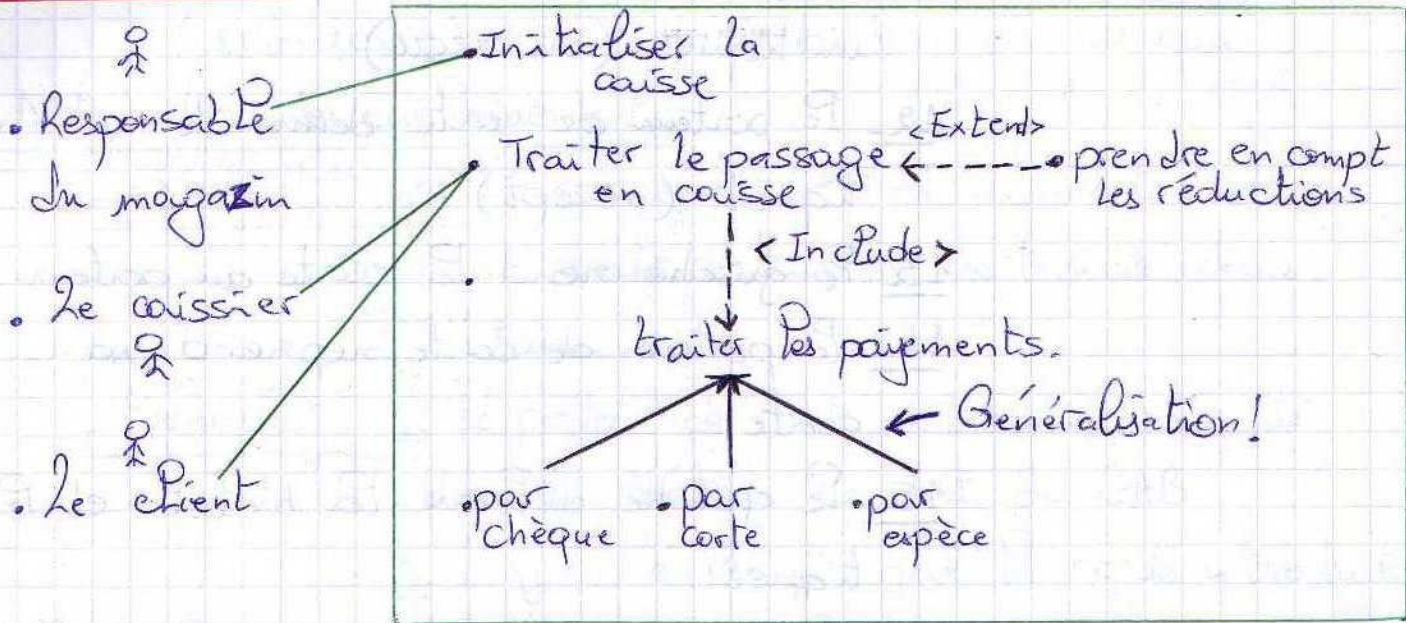 . Responsable
du magazin
. Le caissier
. Le client
. Initialiser la
caisse
. Traiter le passage
en caisse
<Extend>
. prendre en compt
les réductions
<Include>
traiter les payements.
Généralisation!
. par
chèque
. par
carte
. par
espèce